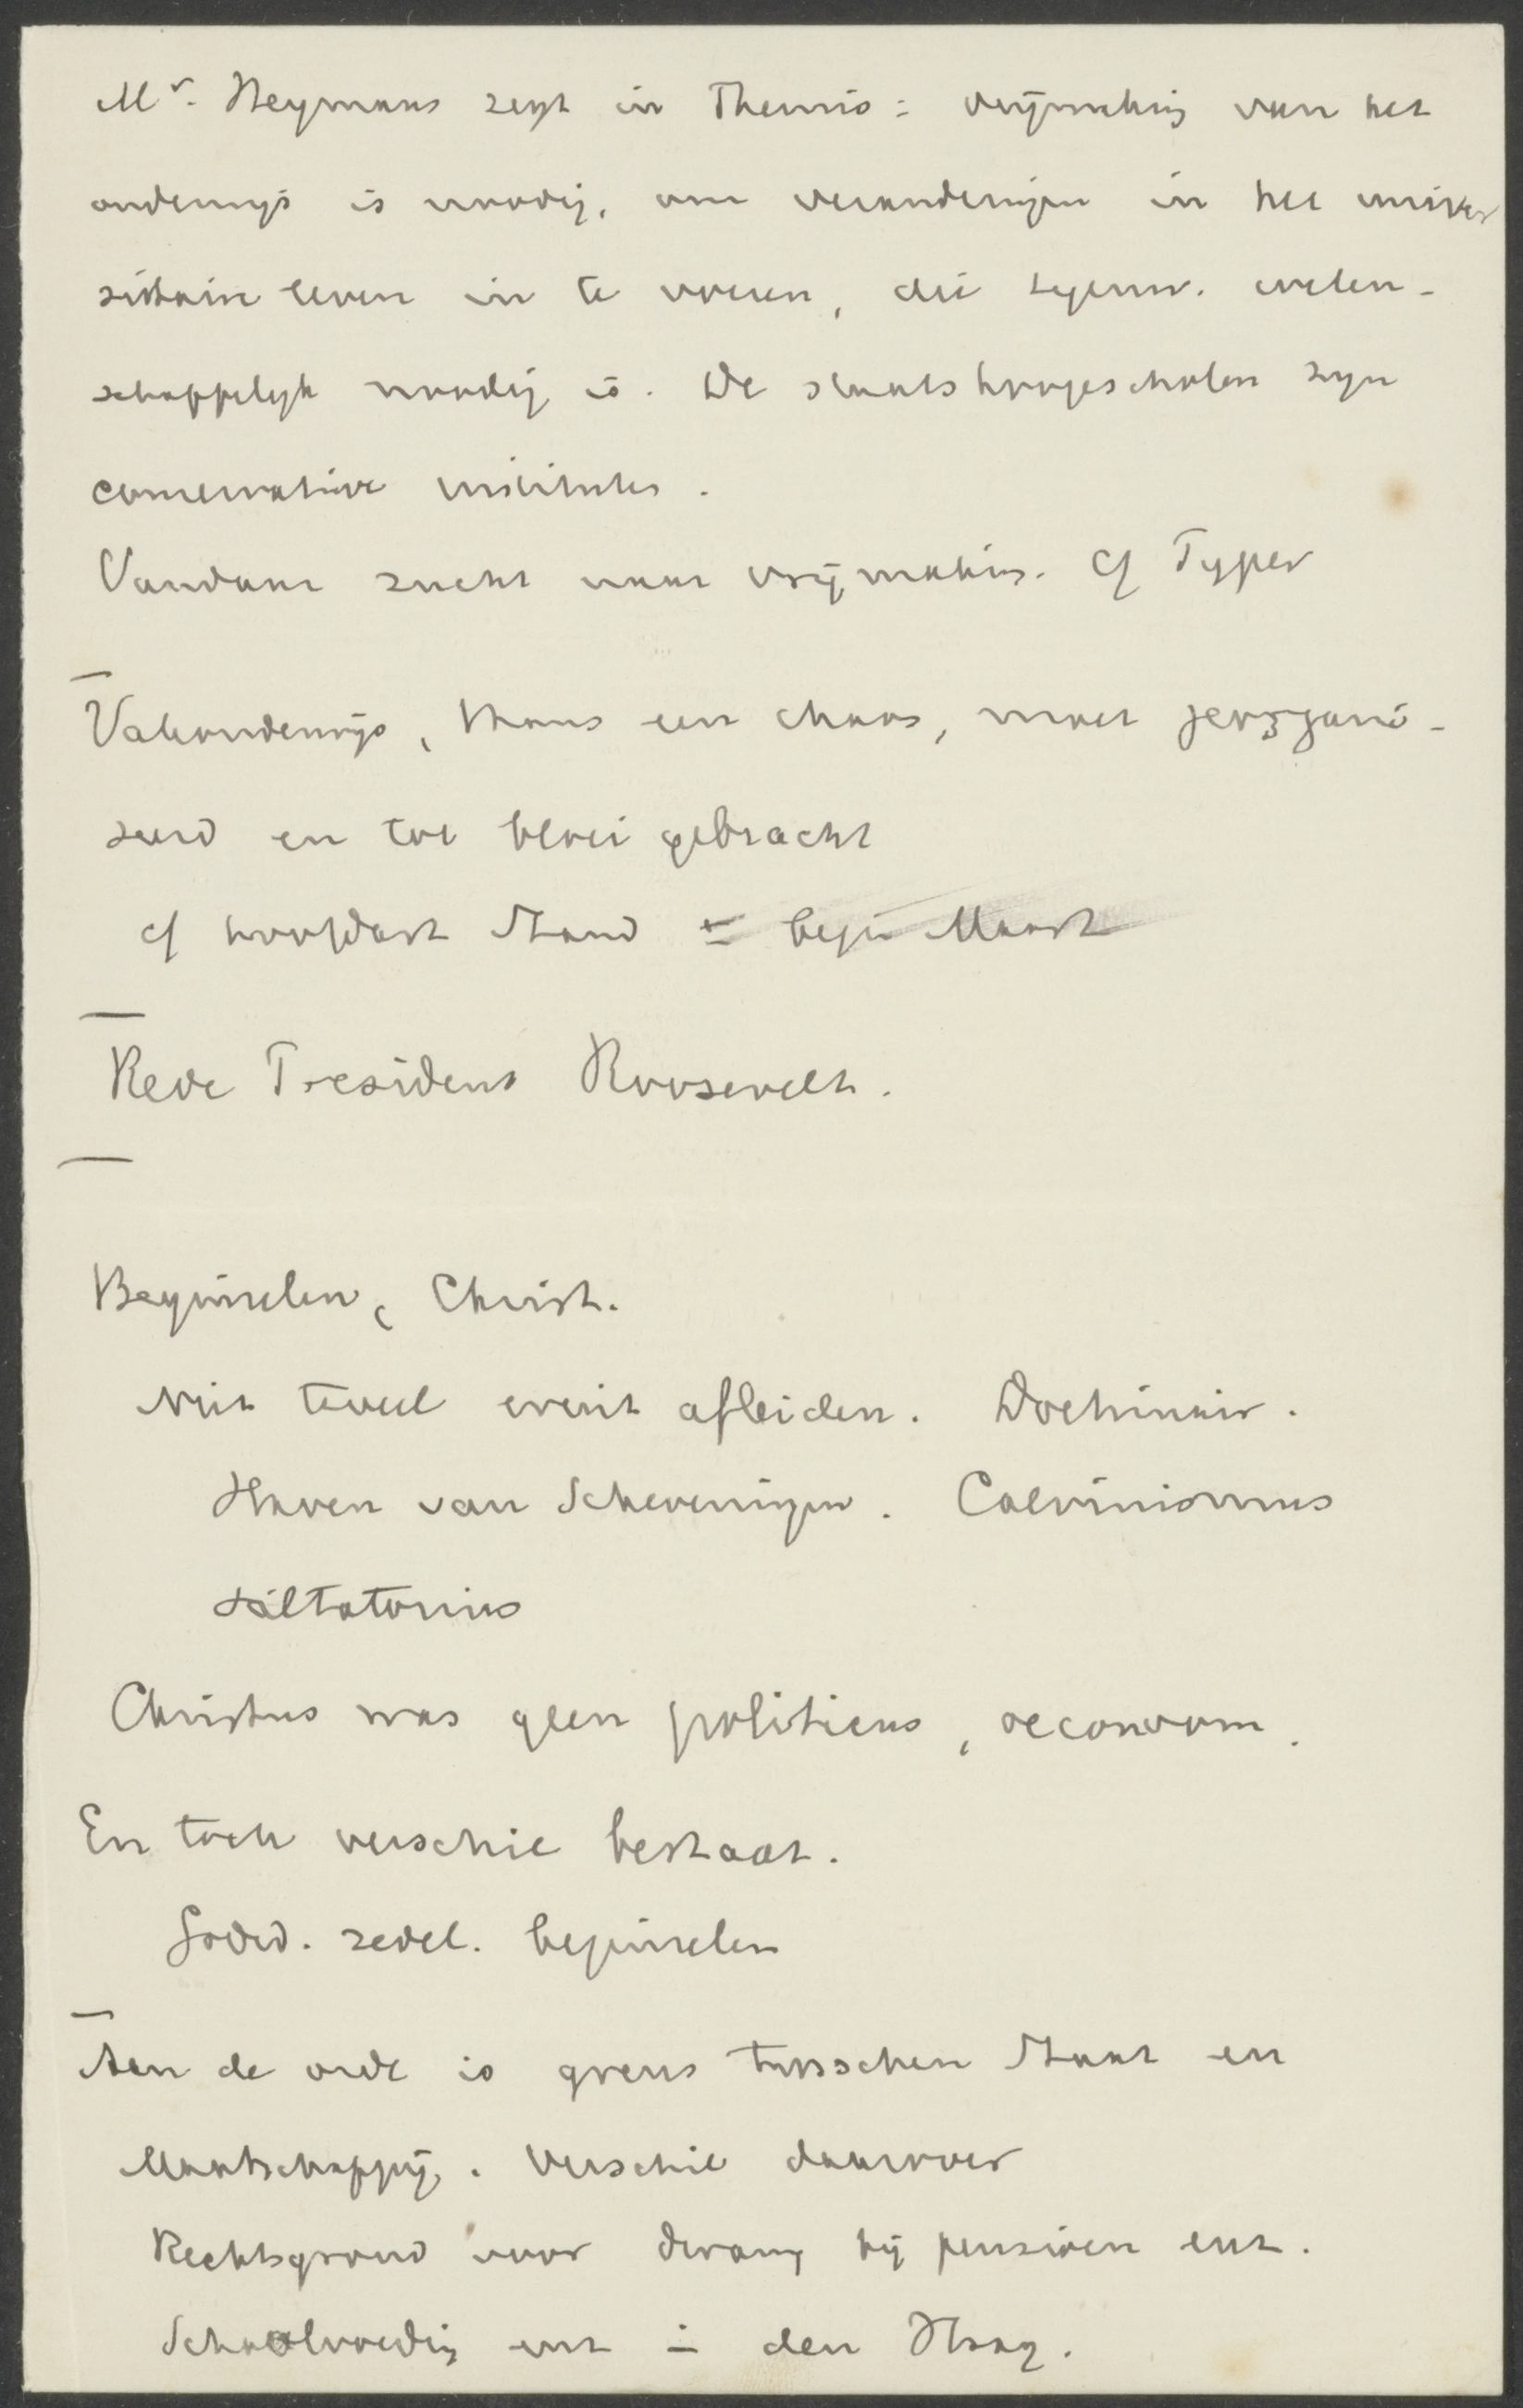 Mr. Heymans zegt in Themis: vrijmaking van het
onderwijs is noodig, om veranderingen in het univer
sitair leven in te voeren, die tegenw. weten-
schappelijk noodig is. De staatshoogescholen zijn
conservatieve instituten.
Vandaar zucht naar vrijmaking. Cf Typer
Vakonderwijs, thans een chaos, moet georgani-
seerd en tot bloei gebracht
cf hoofdart Stand ± begin Maart
Rede President Roosevelt.
Beginselen, Christ.
Niet teveel eruit afleiden. Doctrinair.
Haven van Scheveningen. Calvinismus
saltatorius
Christus was geen politicus, oeconoom.
En toch verschil bestaat.
Godsd. zedel. beginselen
Aan de orde is grens tusschen Staat en
Maatschappij. Verschil daarover
Rechtsgrond voor dwang bij pensioen enz.
Schoolvoeding enz in den Haag.